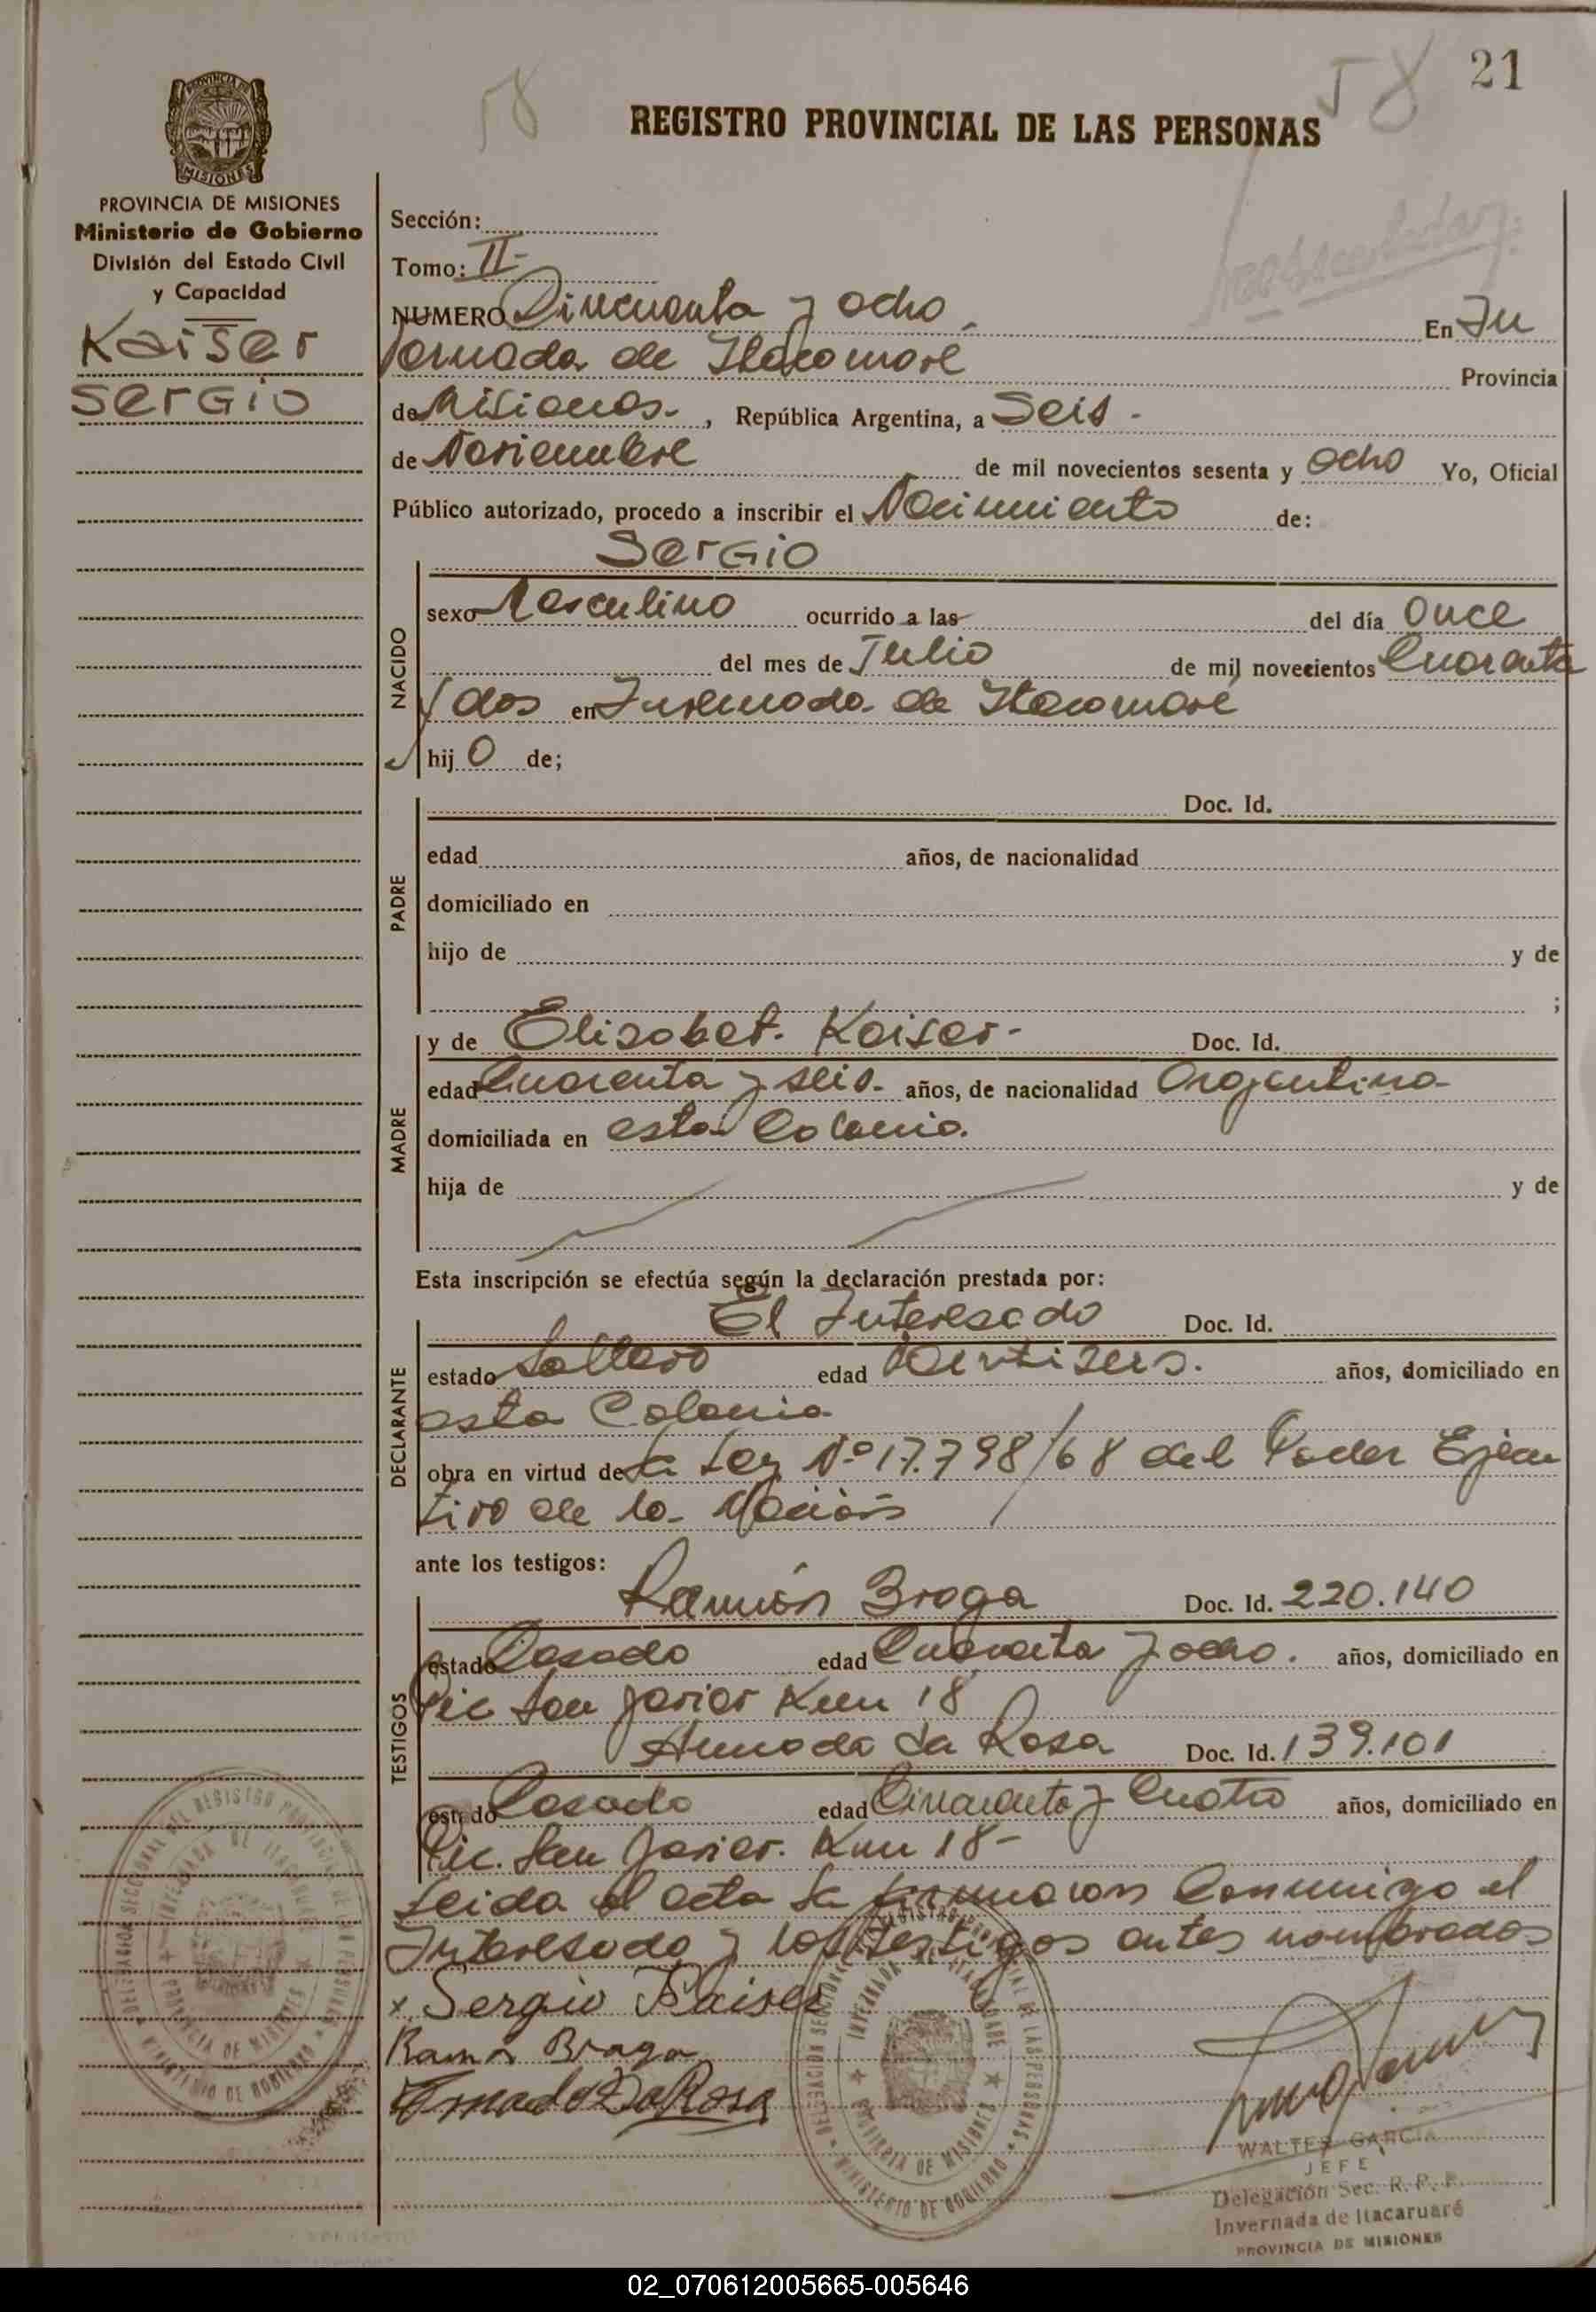 21
58
58
REGISTRO PROVINCIAL DE LAS PERSONAS
PROVINCIA DE MISIONES
Ministerio de Gobierno
División del Estado Civil
y Capacidad
Kaiser
Sergio
Sección:
Tomo: II-
NUMERO Cincuenta y ocho - En In
vernada de Itacaruaré Provincia
de Misiones - , República Argentina, a Seis -
de Noviembre de mil novecientos sesenta y ocho Yo, Oficial
Público autorizado, procedo a inscribir el Nacimiento de:
Sergio
NACIDO
sexo Masculino ocurrido a las del día Once
del mes de Julio de mil novecientos Cuarenta
y dos en Invernada de Itacaruaré
hij o de;
PADRE
Doc. Id.
edad años, de nacionalidad
domiciliado en
hijo de y de
;
MADRE
y de Elisabet. Kaiser - Doc. Id.
edad Cuarenta y seis - años, de nacionalidad Argentina
domiciliada en esta Colonia.
hija de y de
Esta inscripción se efectúa según la declaración prestada por:
El Interesado Doc. Id.
DECLARANTE
estado Soltero edad Veintiseis. años, domiciliado en
esta Colonia
obra en virtud de la Ley Nº 17.798/68 del Poder Ejecu
tivo de la Nación
ante los testigos:
TESTIGOS
Ramón Braga Doc. Id. 220.140
estado Casado edad Cuarenta y ocho. años, domiciliado en
Pic San Javier Km 18
Amado Da Rosa Doc. Id. 139.101
estado Casado edad Cincuenta y Cuatro años, domiciliado en
Pic. San Javier. Km 18-
Leida el acta la firmaron Conmigo el
Interesado y los testigos antes nombrados
x Sergio Kaiser
Ramon Braga
Amado Da Rosa
DELEGACION SECCIONAL DEL REGISTRO PROVINCIAL DE LAS PERSONAS
INVERNADA DE ITACARUARE
PROVINCIA DE MISIONES
MINISTERIO DE GOBIERNO
DELEGACION SECCIONAL DEL REGISTRO PROVINCIAL DE LAS PERSONAS
INVERNADA DE ITACARUARE
PROVINCIA DE MISIONES
MINISTERIO DE GOBIERNO
WALTER GARCIA
JEFE
Delegación Sec. R. P. P.
Invernada de Itacaruaré
PROVINCIA DE MISIONES
02_070612005665-005646